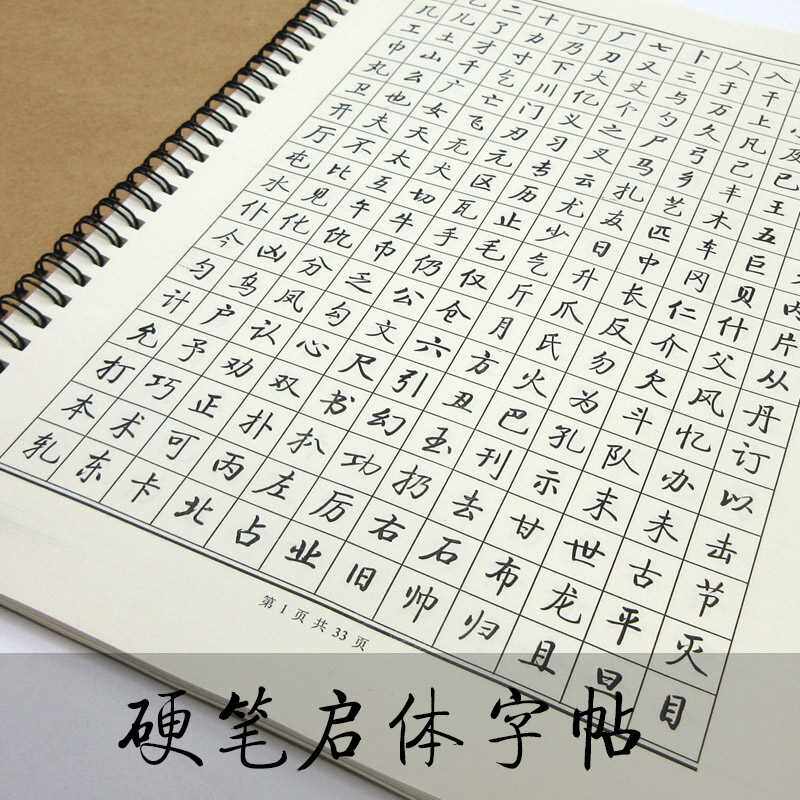 乙二十丁厂七卜人入
几儿了力乃刀又三于干
工土才寸下大丈与万上小
巾山千乞川亿个勺久凡及
丸么广亡门义之尸弓己已
卫也女飞刃习叉马乡丰王
开夫天无元专云扎艺木五
厅不太犬区历尤友匹车巨
屯比互切瓦止少日中冈贝内
水见午牛手毛气升长仁什片
仆化仇币仍仅斤爪反介父从
今凶分乏公仓月氏勿欠风丹
匀乌凤勾文六方火为斗忆订
计户认心尺引丑巴孔队办以
允予劝双书幻玉刊示末未击
打巧正扑扒功扔去甘世古节
本术可丙左厉右石布龙平灭
轧东卡北占业旧帅归且旦目
第 1 页 共 33 页
硬笔启体字帖